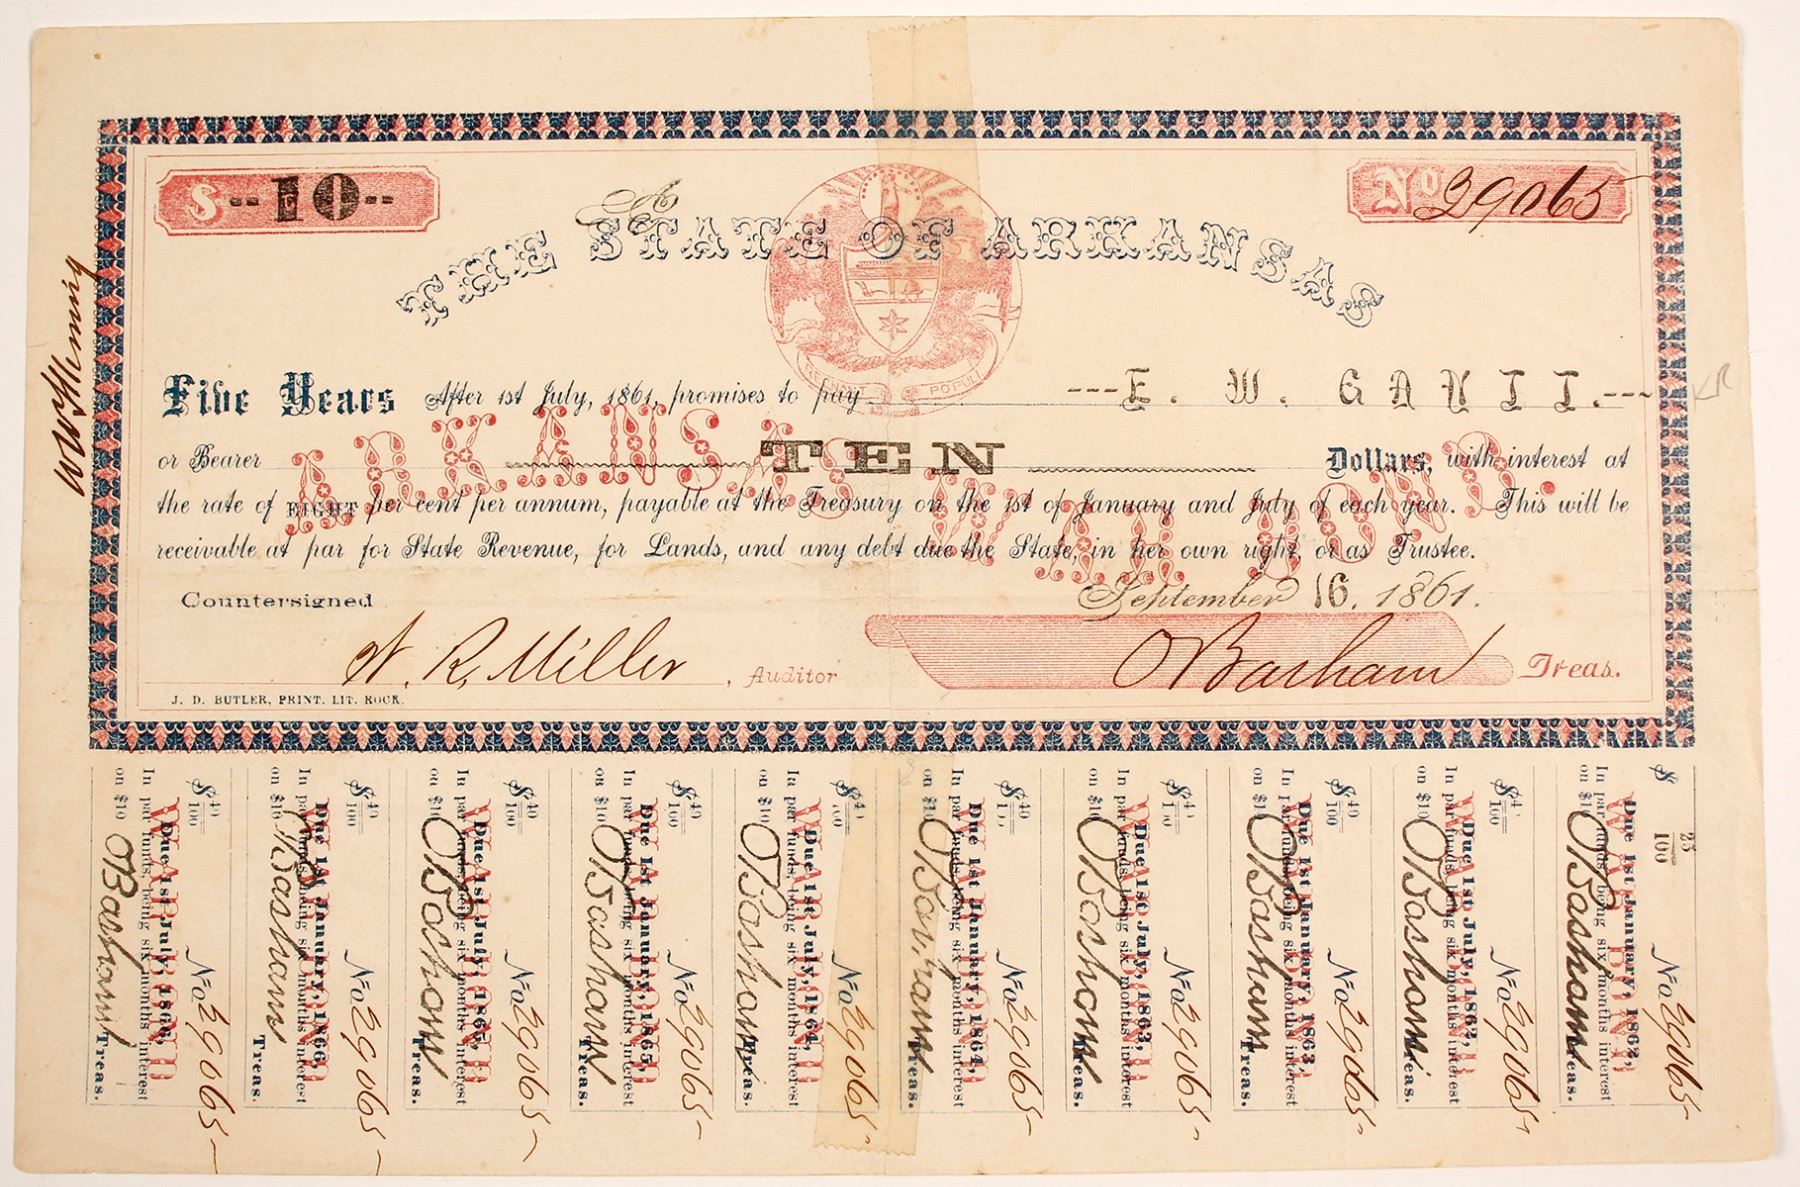 $ --10--
No 39065
THE STATE OF ARKANSAS
REGNANT POPULI
Five Years After 1st July, 1861, promises to pay ---E. W. GANTT.---
or Bearer TEN Dollars, with interest at
the rate of EIGHT per cent per annum, payable at the Treasury on the 1st of January and July of each year. This will be
receivable at par for State Revenue, for Lands, and any debt due the State, in her own right, or as Trustee.
ARKANSAS WAR BOND.
September 16. 1861.
Countersigned
W. R. Miller, Auditor
O Basham Treas.
J. D. BUTLER, PRINT. LIT. ROCK.
KR
$ 40/100 No 39065
Due 1st July, 1866,
In par funds, being six months interest
on $10 O Basham Treas.
WAR BOND
$ 40/100 No 39065
Due 1st January, 1866,
In par funds, being six months interest
on $10 O Basham Treas.
WAR BOND
$ 40/100 No 39065
Due 1st July, 1865,
In par funds, being six months interest
on $10 O Basham Treas.
WAR BOND
$ 40/100 No 39065
Due 1st January, 1865,
In par funds, being six months interest
on $10 O Basham Treas.
WAR BOND
$ 40/100 No 39065
Due 1st July, 1864,
In par funds, being six months interest
on $10 O Basham Treas.
WAR BOND
$ 40/100 No 39065
Due 1st January, 1864,
In par funds, being six months interest
on $10 O Basham Treas.
WAR BOND
$ 40/100 No 39065
Due 1st July, 1863,
In par funds, being six months interest
on $10 O Basham Treas.
WAR BOND
$ 40/100 No 39065
Due 1st January, 1863,
In par funds, being six months interest
on $10 O Basham Treas.
WAR BOND
$ 40/100 No 39065
Due 1st July, 1862,
In par funds, being six months interest
on $10 O Basham Treas.
WAR BOND
$ 23/100 No 39065
Due 1st January, 1862,
In par funds, being six months interest
on $10 O Basham Treas.
WAR BOND